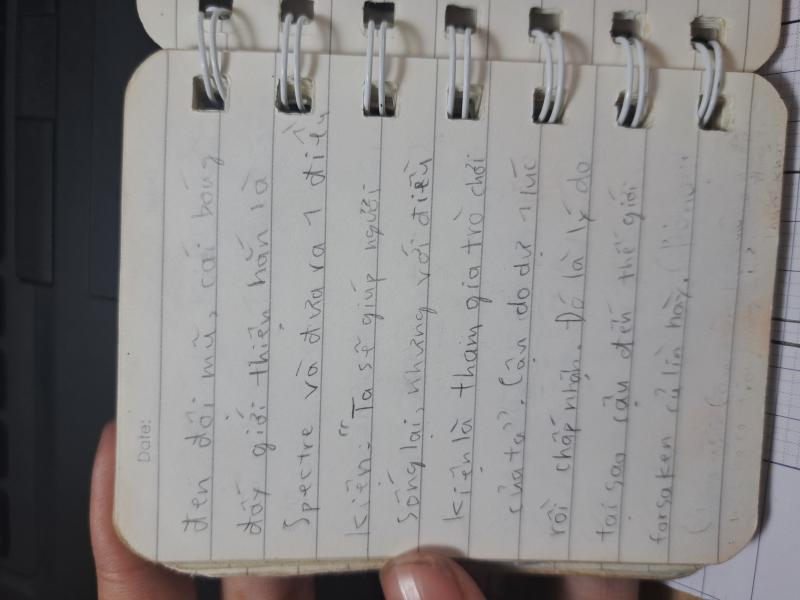 Date:
đen đội mũ, cái bóng
đấy giới thiện hắn là
Spectre và đưa ra 1 điều
kiện: "Ta sẽ giúp người
sống lại, nhưng với điều
kiện là tham gia trò chơi
của ta". Cậu do dự 1 lúc
rồi chấp nhận. Đó là lý do
tại sao cậu đến thế giới
forsaken củ lìn này.